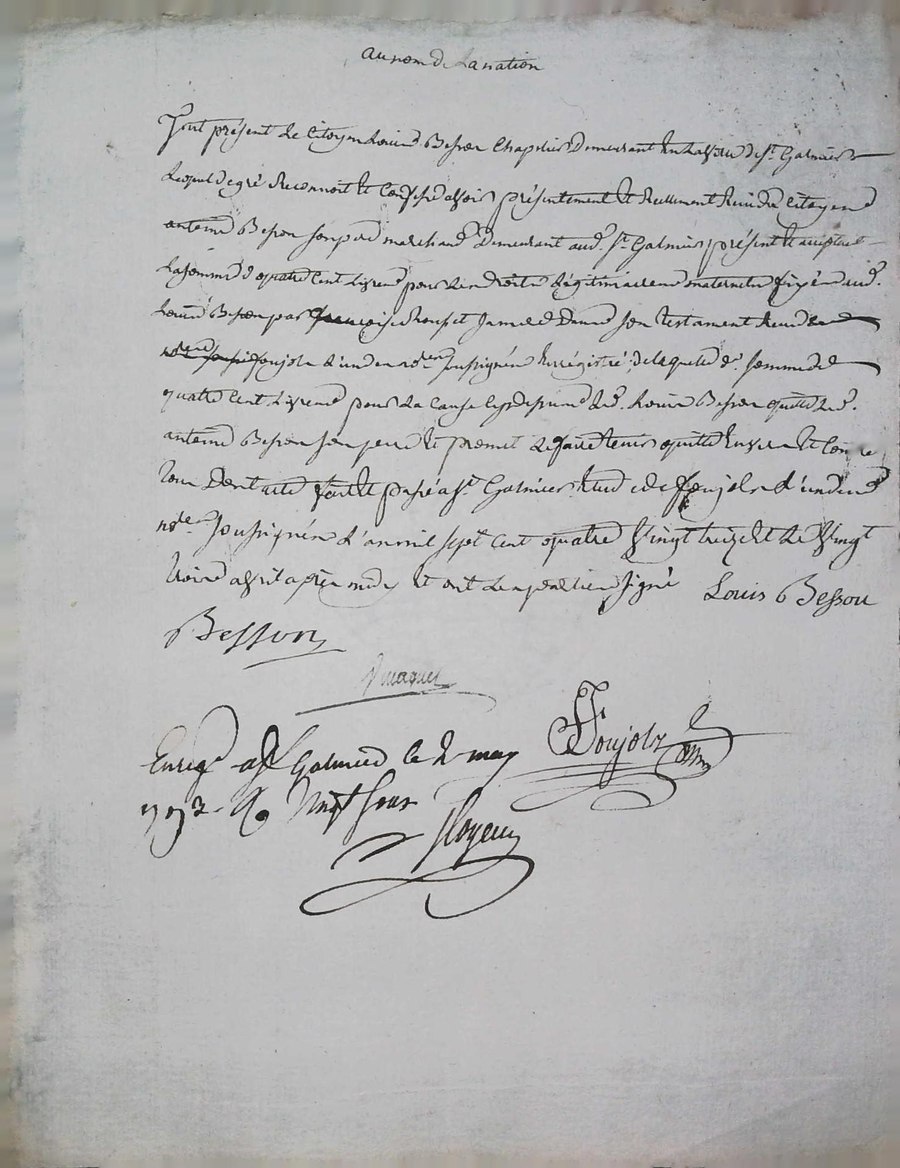 au nom de La nation
fut présent Le Citoyen Louis Besson Chapelier Demeurant En La Ville de St. Galmier
Lequel de gré Reconnoit Et Confesse avoir présentement Et Réellement Reçu du Citoyen
antoine Besson son pere marchand Demeurant aud. St. Galmier présent Et acceptant
La somme de quatre Cent Livres pour Les droits Légitimaires maternels fixés aud.
Louis Besson par françoise Dans son testament Reçu
foujols L'un des nores. soussignés Enrégistré; de laquelle de. somme de
quatre Cent Livres pour La Cause Cydessus Led. Louis Besson quitte Led.
antoine Besson son pere Et promet Le faire tenir quitte Envers Et Contre
tous Dont acte fait Et passé a St. Galmier Etude de foujols L'un des
nores. soussignés L'an mil sept Cent quatre Vingt treize Et Le Vingt
trois avril après midy Et ont Les parties signé Louis Besson
Besson
foujols
Enregé. a St Galmier le 2 may
1793 Vingt sous